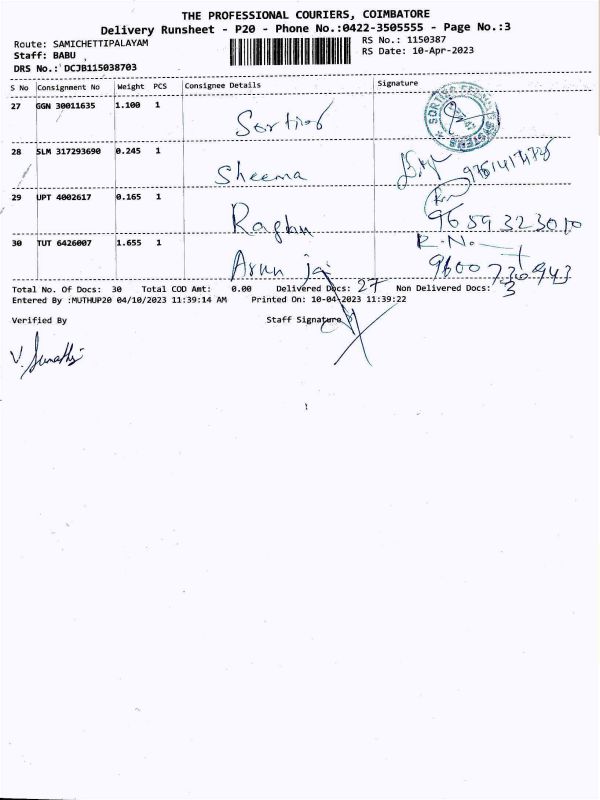 THE PROFESSIONAL COURIERS, COIMBATORE
Delivery Runsheet - P20 - Phone No.:0422-3505555 - Page No.:3
Route: SAMICHETTIPALAYAM RS No.: 1150387
Staff: BABU RS Date: 10-Apr-2023
DRS No.: DCJB115038703
S No Consignment No Weight PCS Consignee Details Signature
27 GGN 30011635 1.100 1 Sortios
28 SLM 317293690 0.245 1 Sheema
29 UPT 4002617 0.165 1 Raghu 9659323010
30 TUT 6426007 1.655 1 Arun jai R.No. 9600736943
Total No. Of Docs: 30 Total COD Amt: 0.00 Delivered Docs: 27 Non Delivered Docs: 3
Entered By :MUTHUP20 04/10/2023 11:39:14 AM Printed On: 10-04-2023 11:39:22
Verified By Staff Signature